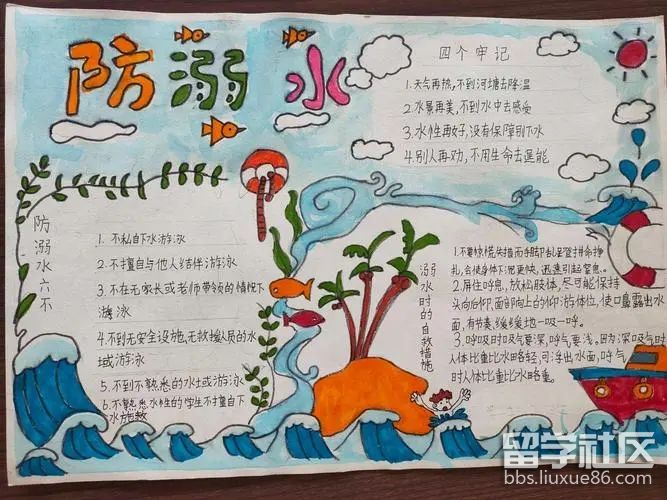 防溺水
四个牢记
1.天气再热,不到河塘去降温
2.水景再美,不到水中去感受
3.水性再好,没有保障别下水
4.别人再劝,不用生命去逞能
防溺水六不
1.不私自下水游泳
2.不擅自与他人结伴游泳
3.不在无家长或老师带领的情况下
游泳
4.不到无安全设施,无救援人员的水
域游泳
5.不到不熟悉的水域游泳
6.不熟悉水性的学生不擅自下
水施救
溺水时的自救措施
1.不要惊慌失措而手脚乱蹬拼命挣
扎,会使身体下沉更快,迅速引起窒息。
2.屏住呼吸,放松肢体,尽可能保持
头向后仰,面部向上的仰游体位,使口鼻露出水
面,有节奏,缓缓地一吸一呼。
3.呼吸时吸气要深,呼气要浅。因为深吸气时
人体比重比水略轻,可浮出水面,呼气
时人体比重比水略重。
留学社区
bbs.liuxue86.com